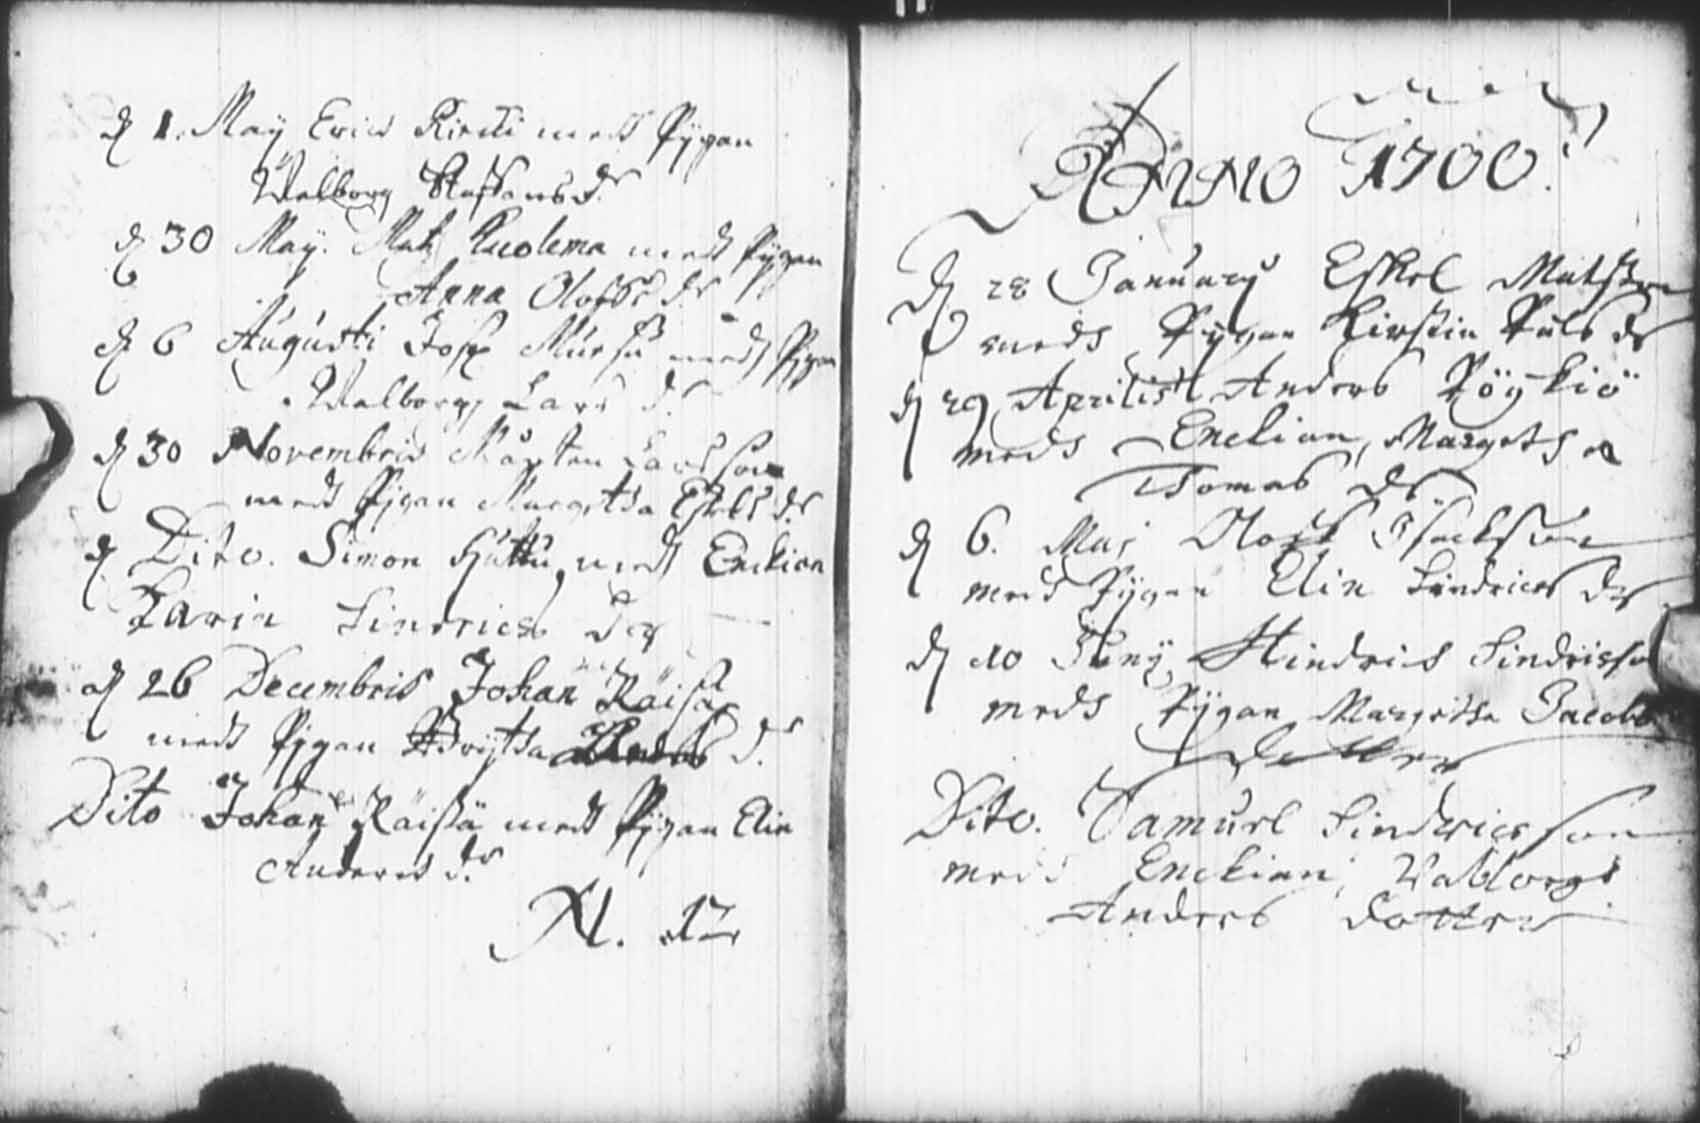 d 1. May Erich Kirsti medh Pygan
Walborg Staffans dr
d 30 May. Mats Kuolema medh Pygan
Anna Olofs dr
d 6 Augusti Josep Mursu medh Pygan
Walborg Lars dr
d 30 Novembris Mårten Larsson
medh Pygan Margetha Eskels dr
d Dito. Simon Huttu medh Enckian
Karin Hindrics dr
d 26 Decembris Johan Räisä
medh Pygan Anders dr
Dito Johan Räisä medh Pygan Elin
Anders dr
N. 12
ANNO 1700.
d 28 January Eskel Matsson
medh Pygan Kirstin Påls dr
d 29 Aprilis Anders Pöykiö
medh Enckian, Margetha
Tomas dr
d 6. Maj Oloff Isacksson
medh Pygan Elin Hindrics dr
d 10 Juny Hindrich Hindrisson
medh Pygan Margetha Jacobs
dotter
Dito. Samuel Hindricsson
medh Enckian, Valborg
Anders dotter